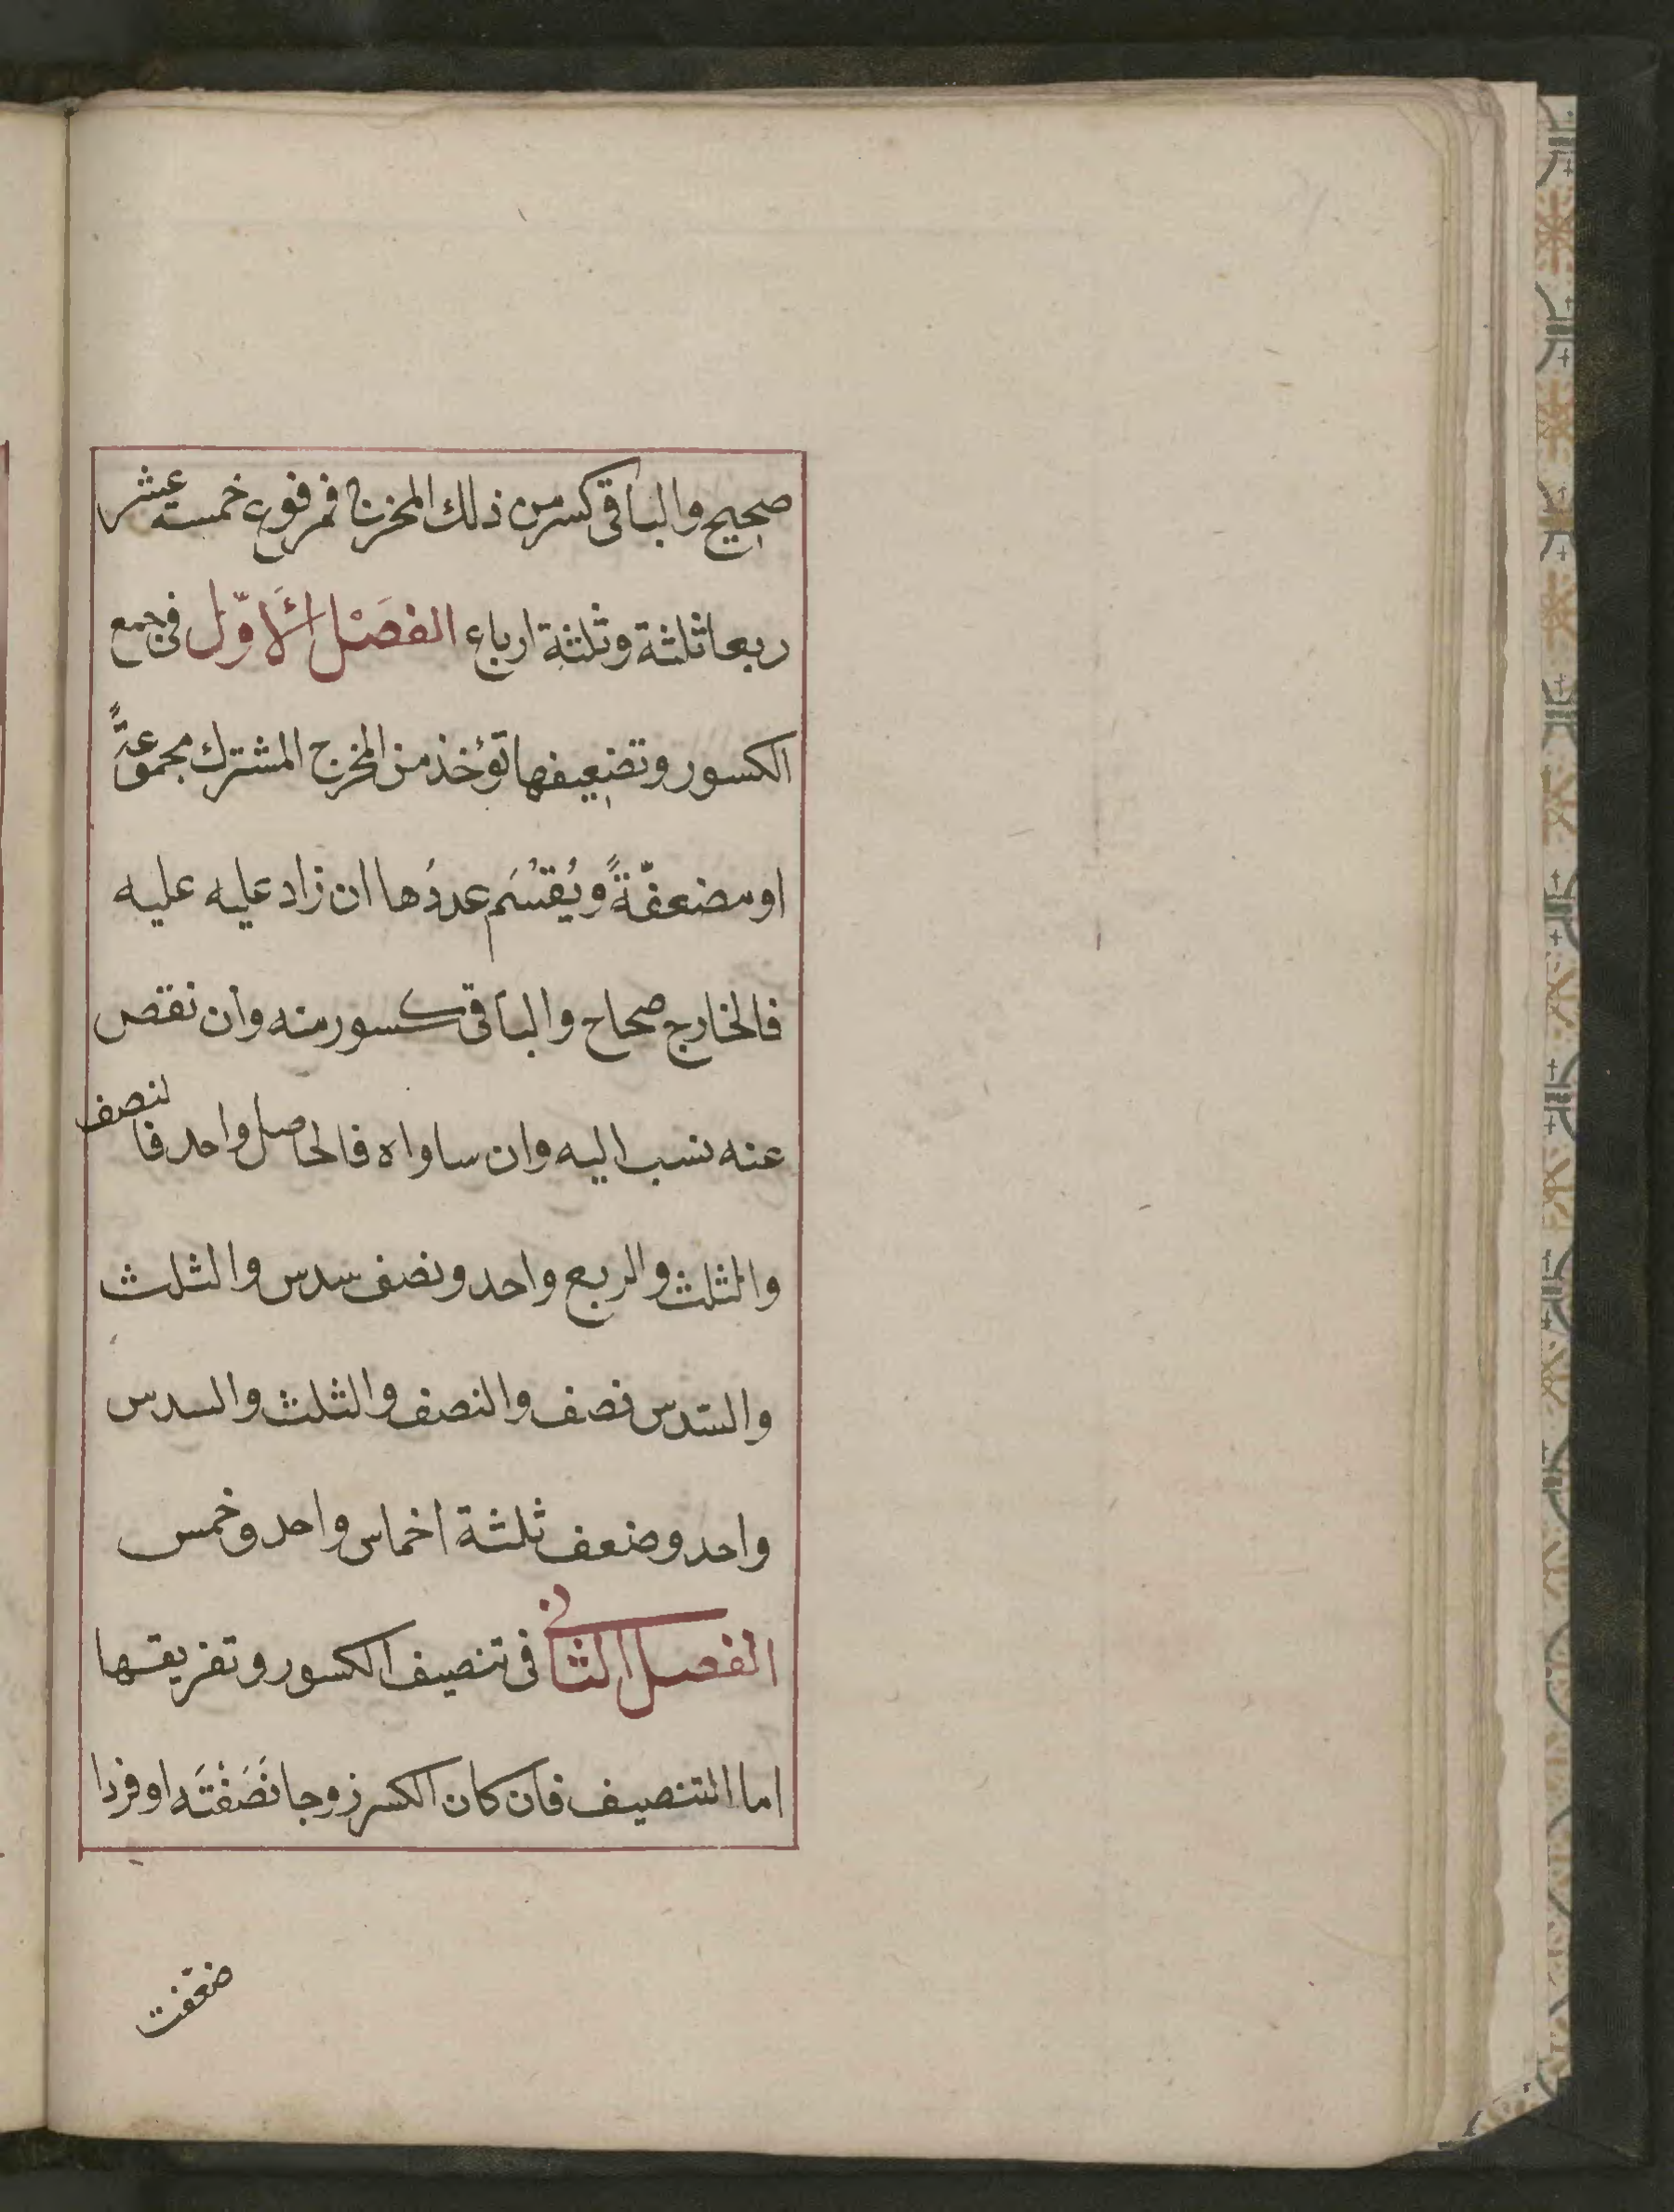 صحيح والباقى كسر من ذلك المخرج فمرفوع خمسة عشر
ربعا ثلثة وثلثة ارباع الفصل الاول فى جمع
الكسور وتضعيفها تؤخذ من المخرج المشترك مجموعةً
او مضعفّةً ويُقسَم عددُها ان زاد عليه عليه
فالخارج صحاح والباقى كسور منه وان نقص
عنه نسب اليه وان ساواه فالحاصل واحد فالنصف
والثلث والربع واحد ونصف سدس والثلث
والسّدس نصف والنصف والثلث والسدس
واحد وضعف ثلثة اخماس واحد وخمس
الفصل الثانى فى تنصيف الكسور وتفريقها
اما التنصيف فان كان الكسر زوجا نَصَفْتَه او فردا
ضعفت